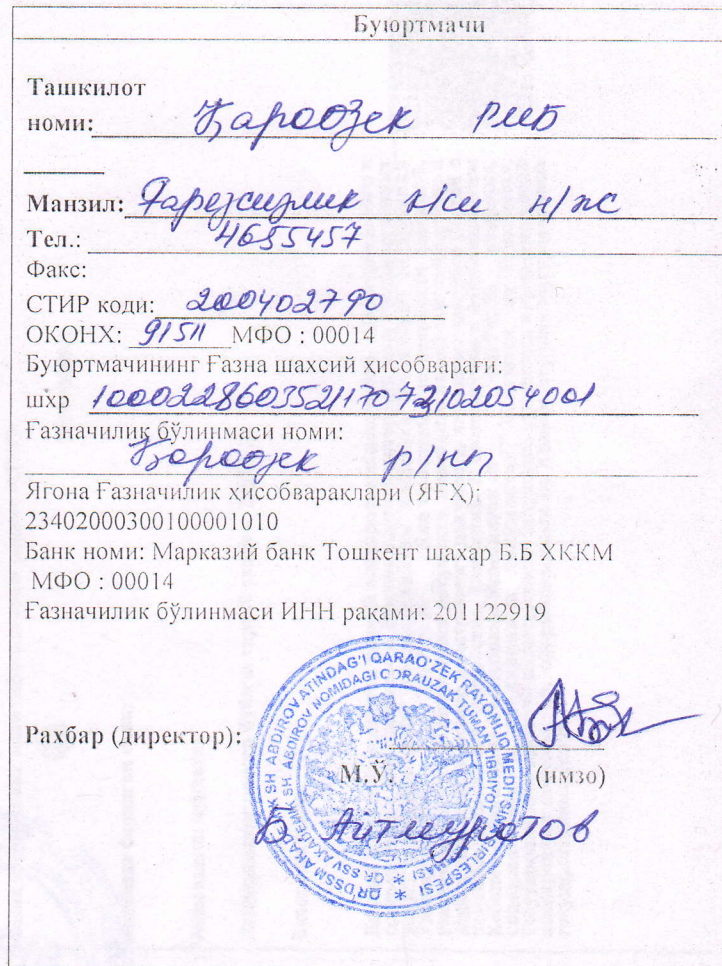 Буюртмачи
Ташкилот
номи: Қараөзек РМБ
Манзил: Ғарезсизлик к/си н/ж
Тел.: 4655457
Факс:
СТИР коди: 200402790
ОКОНХ: 91511 МФО : 00014
Буюртмачининг Ғазна шахсий ҳисобварағи:
шхр 100022860352117072102054001
Ғазначилик бўлинмаси номи:
Қараөзек р/нп
Ягона Ғазначилик ҳисобварақлари (ЯҒҲ):
23402000300100001010
Банк номи: Марказий банк Тошкент шахар Б.Б ХККМ
МФО : 00014
Ғазначилик бўлинмаси ИНН рақами: 201122919
QR DSSM AKADEMIK SH ABDIROV ATINDAG'I QARAO'ZEK RAYONLIQ MEDITSINA BIRLESPESI
QR SSV AKADEMIK SH ABDIROV NOMIDAGI QORAUZAK TUMAN TIBBIYOT
Рахбар (директор):
М.Ў. (имзо)
Б Айтмуратов